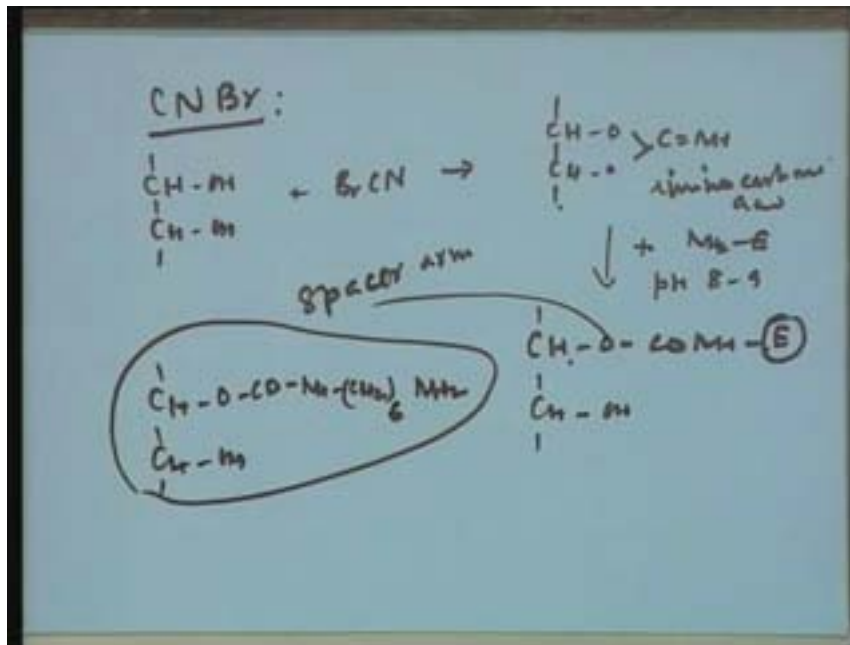 CNBr :
CH - OH
CH - OH
+ BrCN →
CH - O
CH - O
> C = NH
imino carbonic acid
+ NH2 - E
pH 8 - 9
spacer arm
CH - O - CONH - E
CH - OH
CH - O - CO - NH - (CH2)6 NH2
CH - OH